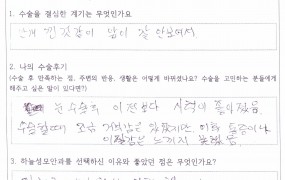 1. 수술을 결심한 계기는 무엇인가요
밤이 잘 안보여서
2. 나의 수술후기
(수술 후 만족하는 점, 주변의 반응, 생활은 어떻게 바뀌셨나요? 수술을 고민하는 분들에게
해주고 싶은 말이 있다면?)
눈 수술후 이전보다 시력이 좋아졌음.
수술할때 조금 있었지만, 이후 통증이나
느끼지 못했음.
3. 하늘성모안과를 선택하신 이유와 좋았던 점은 무엇인가요?